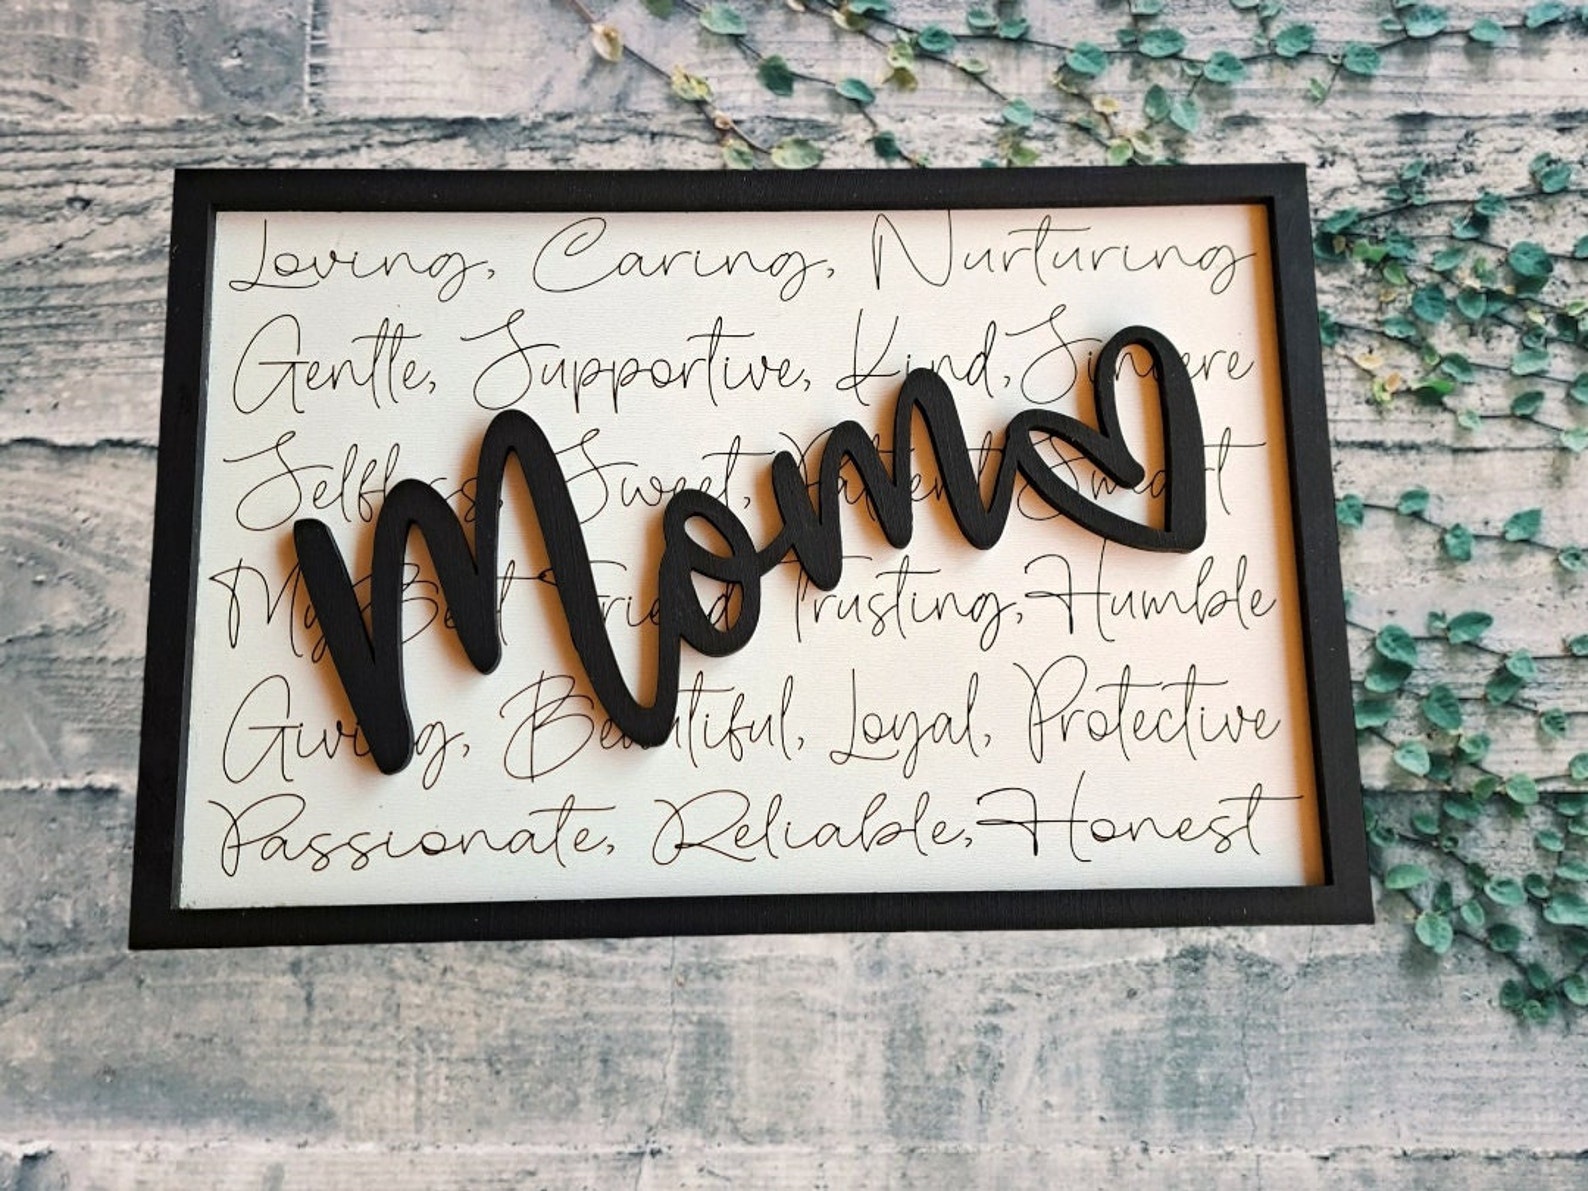 Loving, Caring, Nurturing
Gentle, Supportive, Kind, Sincere
Selfless, Sweet, Patient Smart
Mom
My Best Friend Trusting, Humble
Giving, Beautiful, Loyal, Protective
Passionate, Reliable, Honest